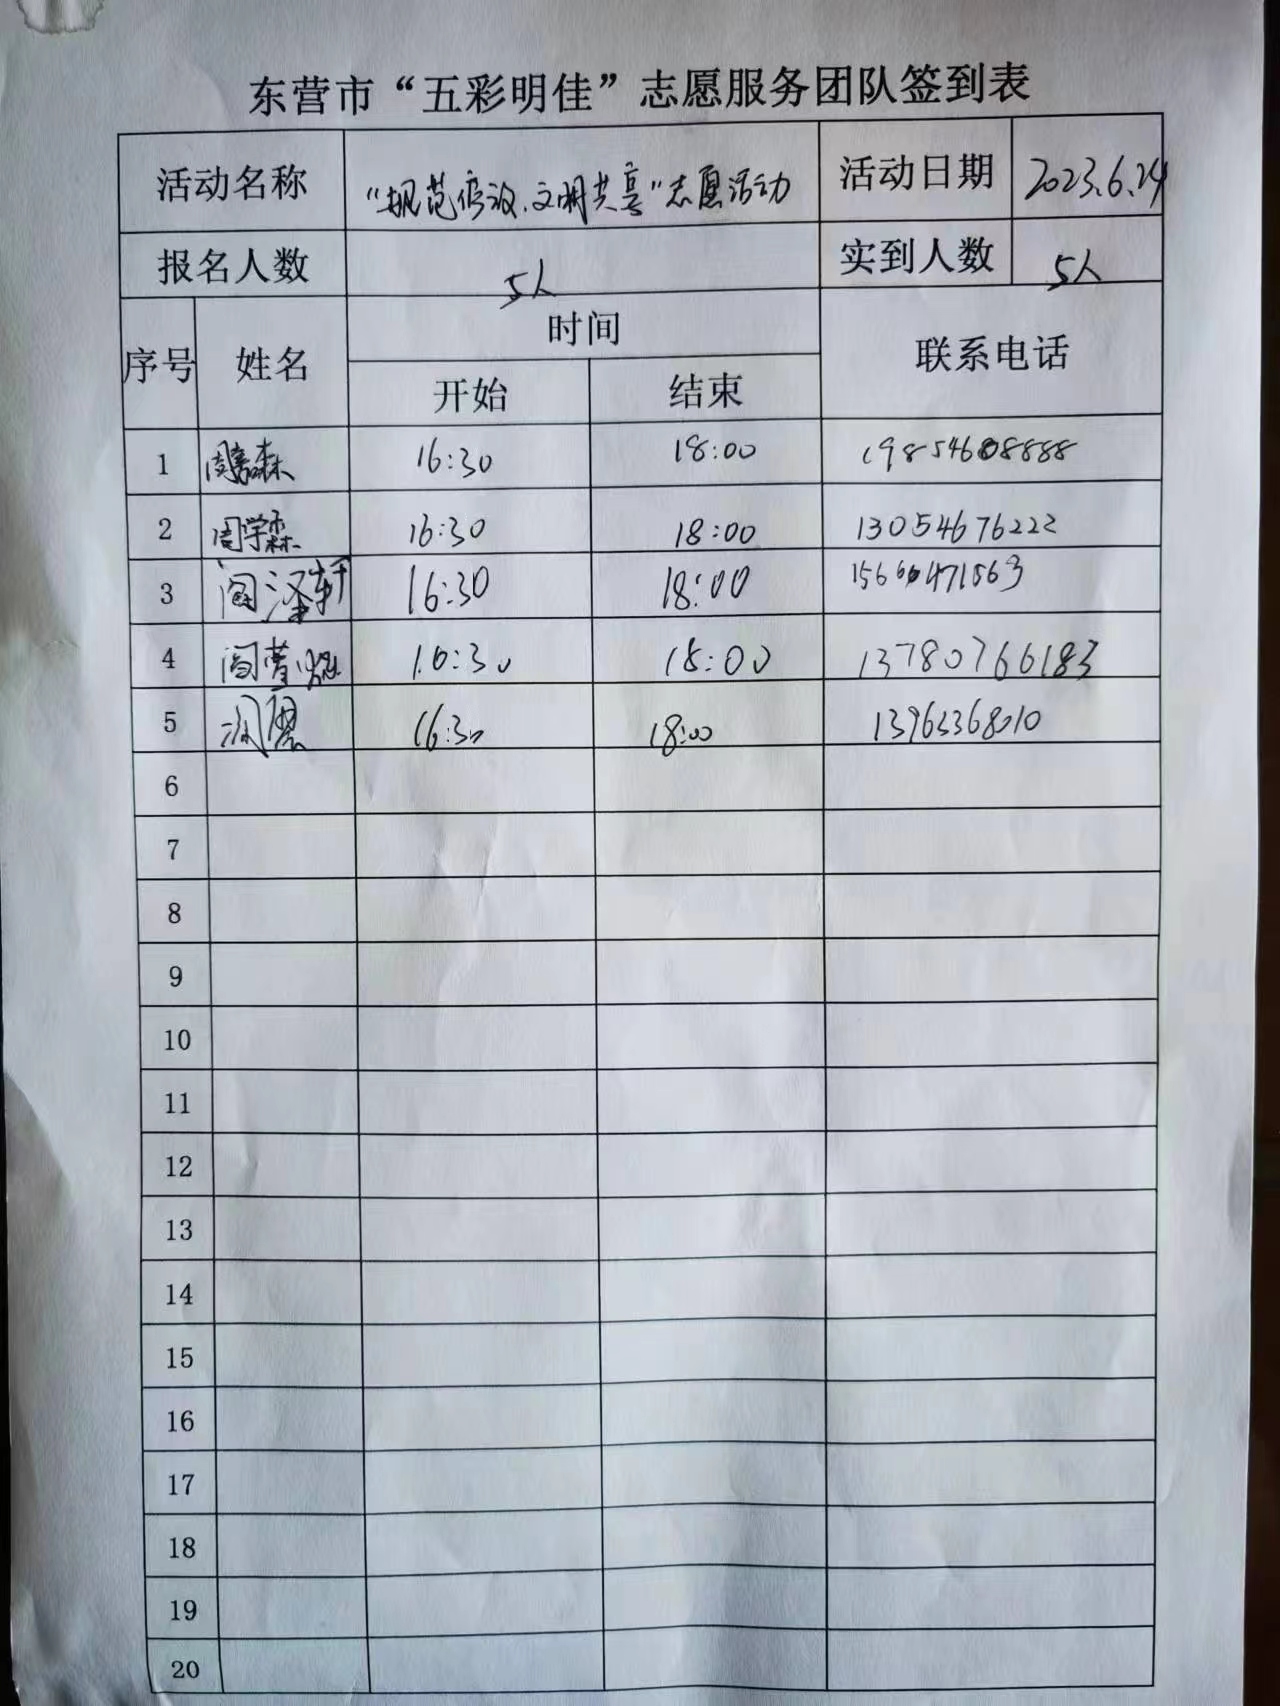 东营市“五彩明佳”志愿服务团队签到表
活动名称 “规范停放、文明共享”志愿活动 活动日期 2023.6.24
报名人数 5人 实到人数 5人
序号 姓名 时间 联系电话
开始 结束
1 周嘉森 16:30 18:00 19854608888
2 周学森 16:30 18:00 13054676222
3 阎泽轩 16:30 18:00
4 16:30 18:00 13780766183
5 16:30 18:00
6
7
8
9
10
11
12
13
14
15
16
17
18
19
20